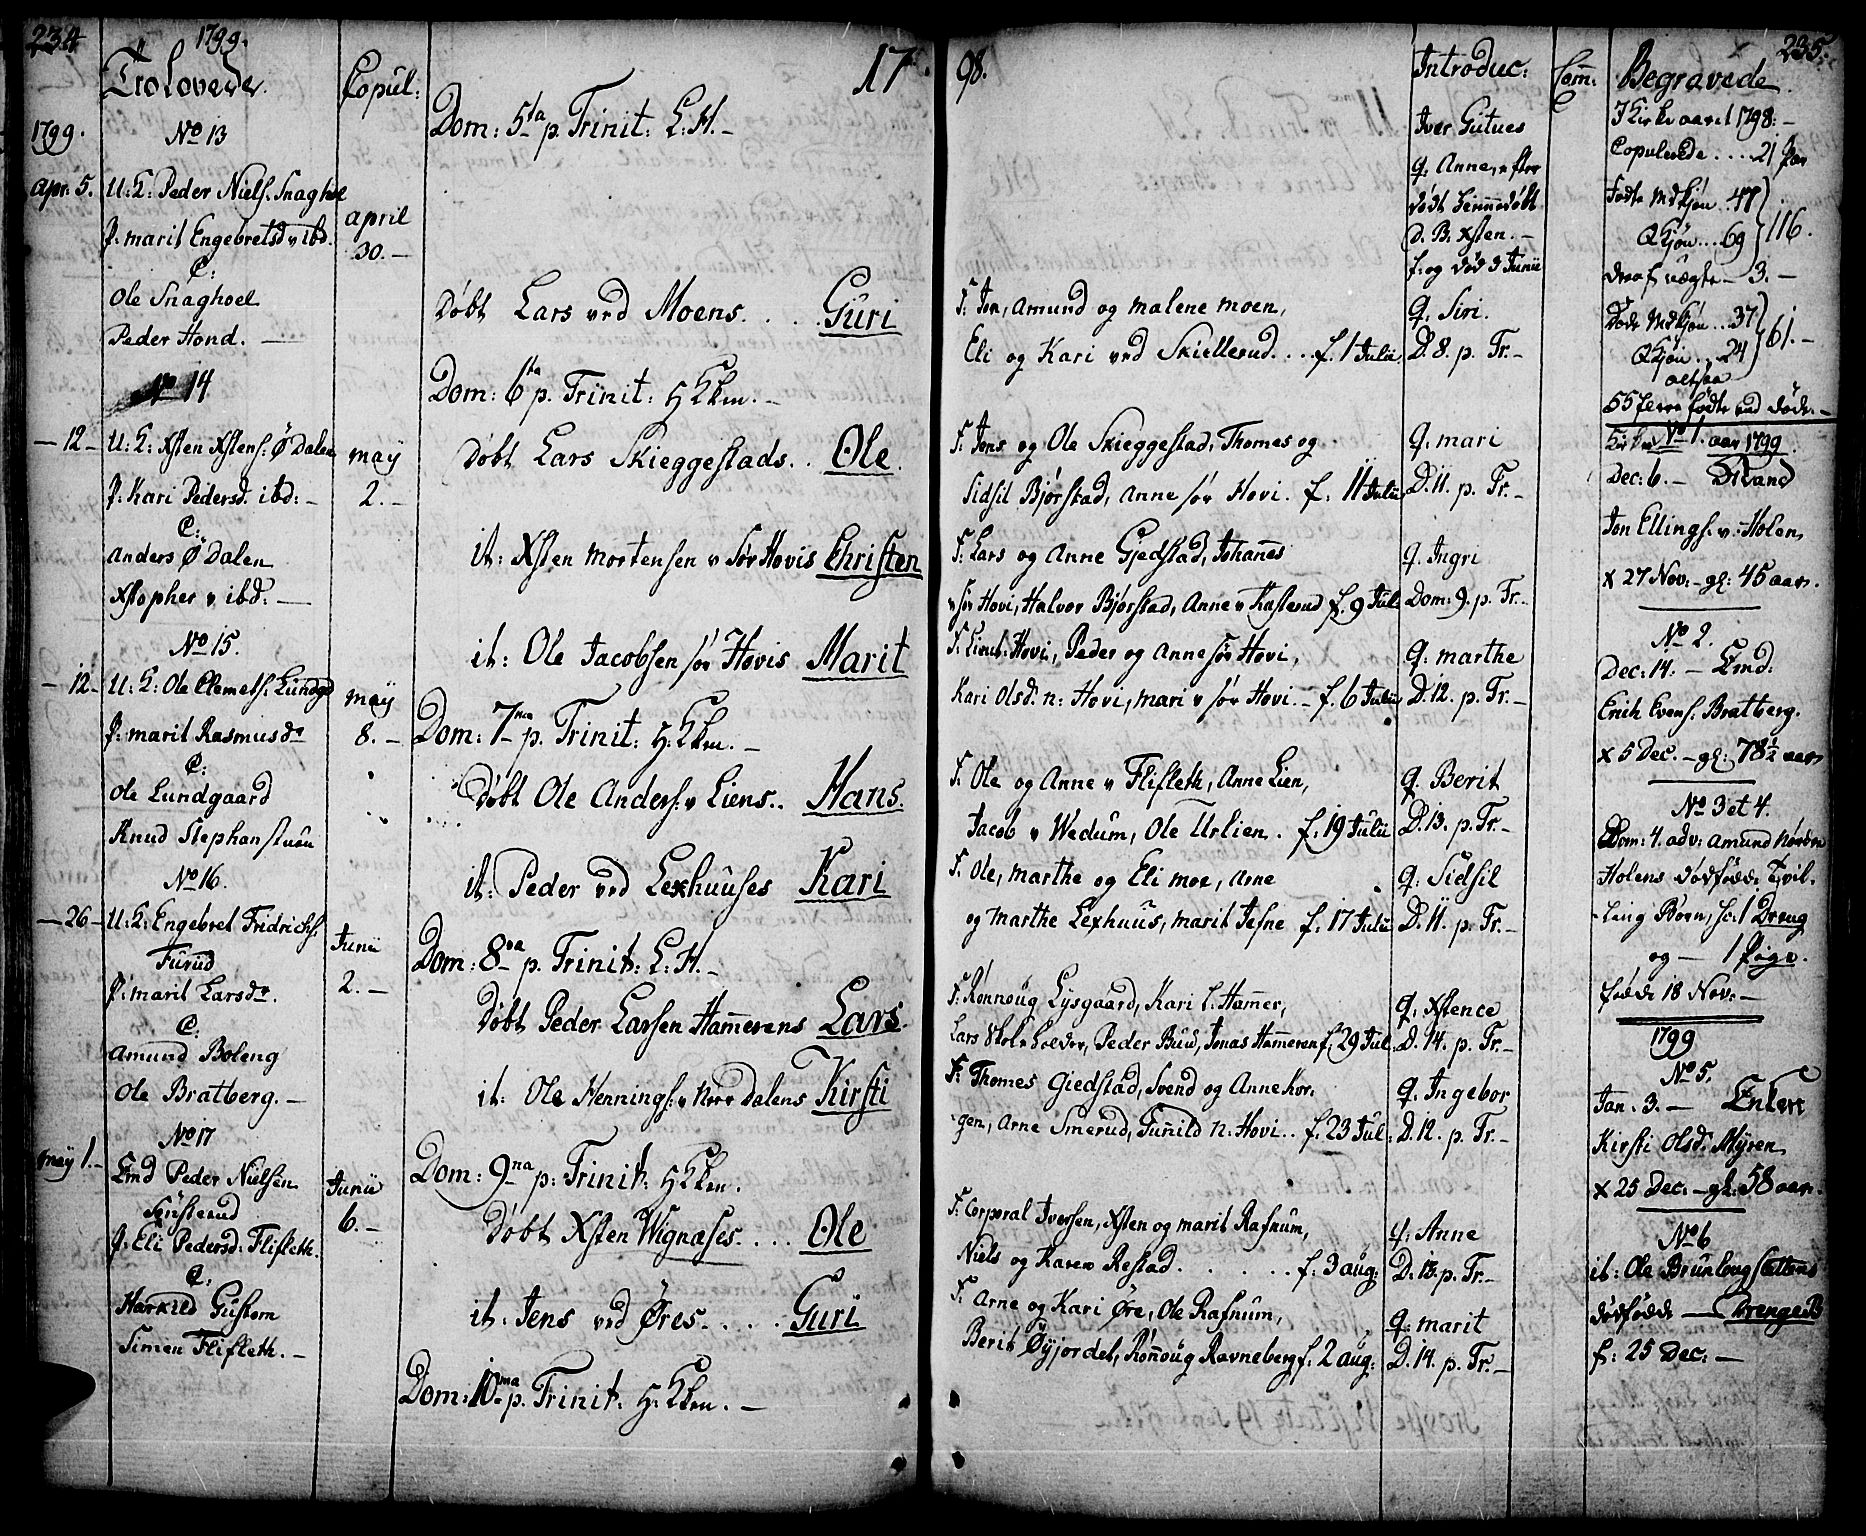 234
1799.
Trolovede.
Copul:
17
98.
Introduc:
Com:
Begravede
235.
1799.
No 13
Apr: 5.
U: K: Peder Niels: Snaghoel
P: Marit Engebretsd v ibd.
C:
Ole Snaghoel
Peder Hond. —
april
30. —
No 14
— 12 —
U: K: Xsten Xstens: Ø Dalen
P: Kari Pedersd. ibd: —
C:
Anders Ø Dalen
Xstopher v ibd: —
may
2. —
No 15.
— 12 —
U: K: Ole Clemets: Lundgd
P: marit Rasmusdr
C:
Ole Lundgaard
Knud Stephanstuen
may
8. —
No 16.
— 26 —
U: K: Engebret Fridrichs:
Furud
P: marit Larsdr.
C:
Amund Boleng
Ole Bratberg. —
Junii
2. —
No 17
may 1. —
Emd Peder Nielsen
P: Eli Pedersd: Flifleth.
C:
Simen Flifleth. —
Junii
6. —
Dom: 5ta p. Trinit: L: H. —
Døbt Lars ved Moens. . . . Guri
Dom: 6ta p. Trinit: H Kken. —
Døbt Lars Skieggestads. . Ole.
it: Xsten Mortensen v Sør Hovis Christen
it: Ole Jacobsen sør Hovis Marit
Dom: 7ma p. Trinit: H: Kken. —
Døbt Ole Anders: v Liens. . Hans.
it: Peder ved Lexhuuses Kari
Dom: 8va p. Trinit: L: H. —
Døbt Peder Larsen Hamerens Lars.
it: Ole Hennings: v Nørr Dalens Kirsti
Dom: 9na p: Trinit: H Kken.
Døbt Xsten Wignæses. . . . Ole
it: Jens ved Øres. . . . . Guri
Dom: 10ma p. Trinit: H: Kken. —
F: Jon, Amund og Malene Moen,
Eli og Kari ved Skiellerud. . . f. 1 Julii
F: Jens og Ole Skieggestad, Thomes og
Sidsil Bjørstad, Anne sør Hovi. f: 11 Julii
F: Lars og Anne Gjedstad, Johannes
v sør Hovi, Halvor Bjørstad, Anne v Kasterud f. 9 Jul.
F: Lieut: Hovi, Peder og Anne sør Hovi,
Kari Olsd: n: Hovi, mari v sør Hovi. — f. 6 Julii
F: Ole og Anne v Flifleth, Anne Lien,
Jacob v Wedum, Ole Urlien. f: 19 Julii
F: Ole, Marthe og Eli moe, Arne
og Marthe Lexhuus, marit Jefne f: 17 Julii
F: Ronnoug Lysgaard, Kari l: Hamer,
Lars Skoleholder, Peder Buu, Jonas Hameren f: 29 Jul.
F: Thomes Giedstad, Svend og Anne Kor-
gen, Arne Smerud, Gunild n: Hovi. . f: 23 Jul:
F: Corporal Iversen, Xsten og marit Rafnum,
Niels og Karen Restad. . . . . . f: 3 aug:
F: Arne og Kari Øre, Ole Rafnum,
Berit Øyjordet, Ronnoug Ravneberg f: 2 aug:
Iver Gutues
q: Anne, efter
dødt hiemmedøbt
D. B. Xsten. —
f: og død 3 Junii
q: Siri.
D. 8. p. Tr. —
q: mari
D. 11. p. Tr. —
q: Ingri
Dom: 9. p. Tr. —
q: marthe
D. 12. p. Tr. —
q: Berit
D. 13. p. Tr. —
q: Sidsil
D. 11. p. Tr. —
q: Xstence
D. 14. p. Tr. —
q: Ingebor
D. 12. p. Tr. —
q: Anne
D. 13. p. Tr. —
q: marit
D. 14. p. Tr. —
I Kirkeaaret 1798: —
Copulerede . . . . 21 Par
Fødte Mdkjøn . 47
Qkjøn . . . 69 } 116.
deraf uægte — 3. —
Døde Mdkjøn . . 37
Qkjøn . . 24 } 61. —
altsaa
55 flere fødte end døde. —
Kirke No 1. aar 1799.
Dec: 6. — Strand
Jon Ellings: v. Holen
x 27 Nov: — gl: 45 aar.
No 2.
Dec: 14. — Emd:
Erich Evens: Bratberg.
x 5 Dec. — gl: 78 1/2 aar
No 3 et 4.
Dom: 4. adv: Amund Nordre
Holens dødfødde Tvil-
ling Børn, sc: 1 Dreng
og — 1 Pige.
fødde 18 Nov: —
1799
No 5.
Jan: 3. — Enken
Kirsti Olsd: Myren
x 25 Dec: — gl: 58 aar.
No 6
it: Ole Brunlaugslettens
dødfødde — Drengeb
f: 25 Dec: —